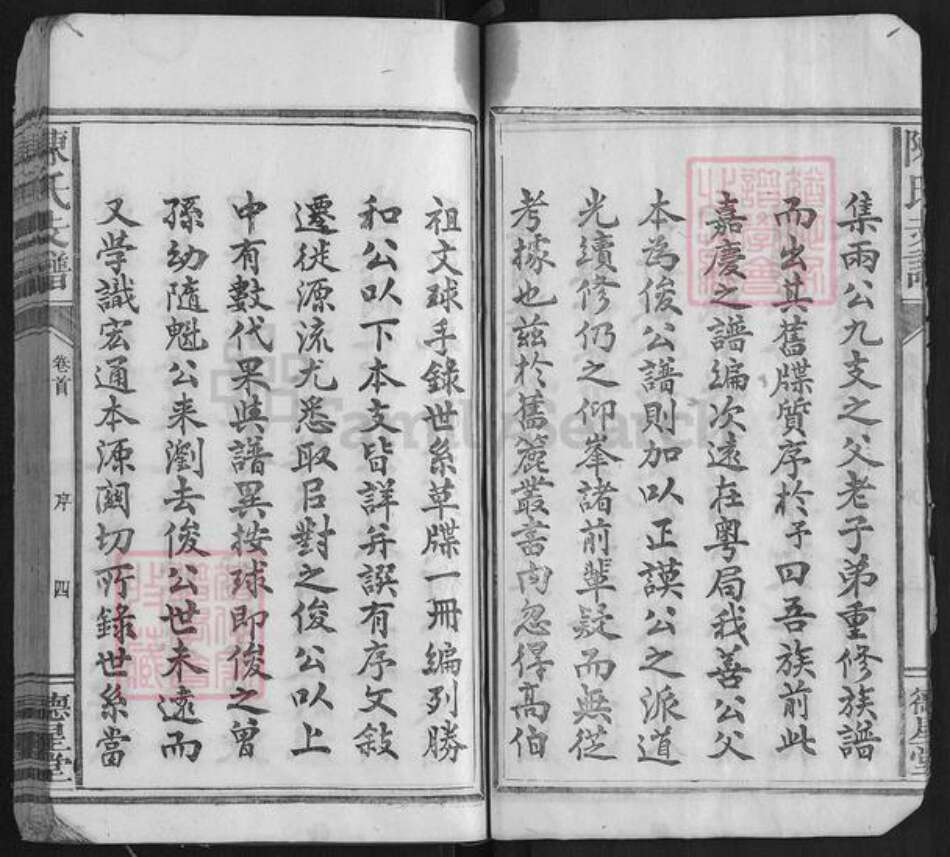 集兩公九支之父老子弟重修族譜
而出其舊牒質序於予曰吾族前此
嘉慶之譜編次遠在粤局我善公父
本為俊公譜則加以正謨公之派道
光續修仍之仰峯諸前輩疑而無從
考據也兹於舊簏叢書内忽得高伯
祖文球手錄世系草牒一冊編列勝
和公以下本支皆詳并譔有序文敍
遷徙源流尤悉取㠯對之俊公以上
中有數代果與譜異按球即俊之曾
孫幼隨魁公来瀏去俊公世未遠而
又学識宏通本源關切所錄世系當
陳氏支譜
卷首
序
四
德星堂
FamilySearch